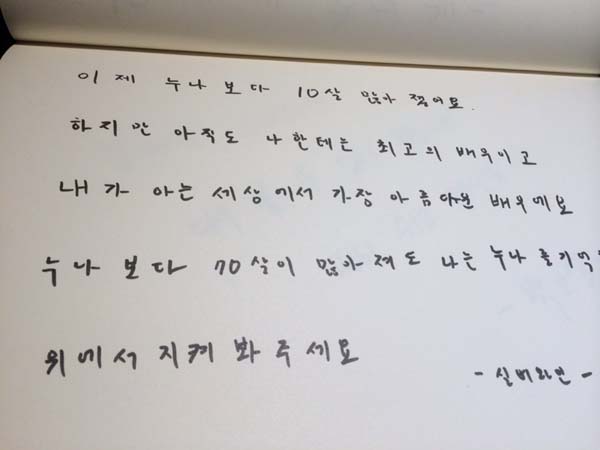 이제 누나보다 10살 많아 졌어요.
하지만 아직도 나한테는 최고의 배우이고
내가 아는 세상에서 가장 아름다운 배우에요
누나보다 70살이 많아져도 나는 누나
위에서 지켜봐주세요
- 실버라인 -